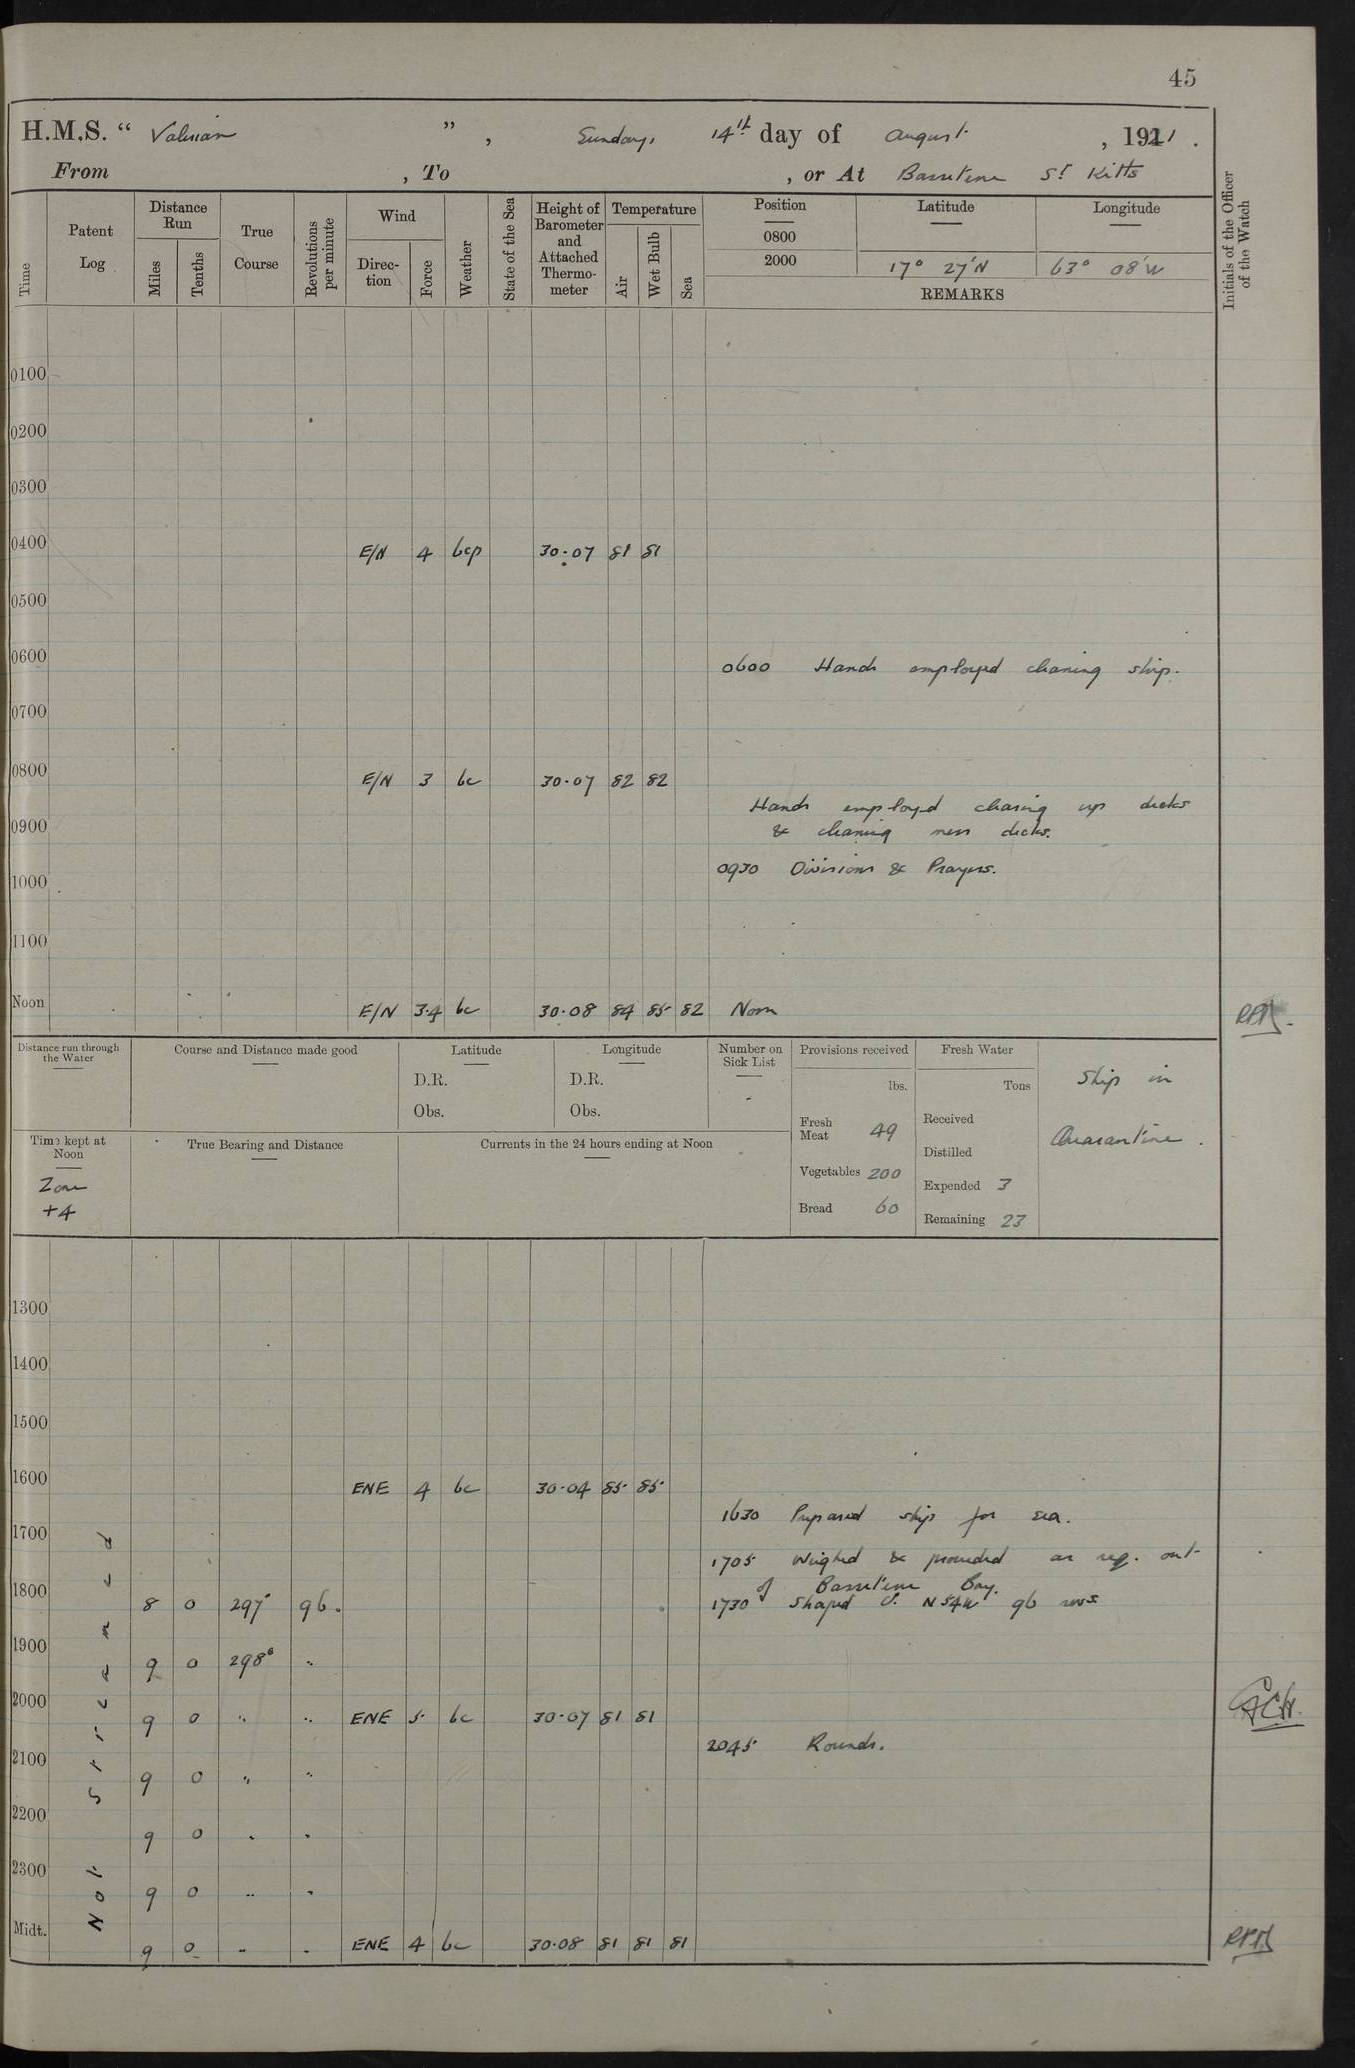 45
H.M.S. “ Valerian ” , Sunday, 14th day of August , 1921 .
From , To , or At Basseterre St Kitts
Time Patent Log Distance Run Miles Tenths True Course Revolutions per minute Wind Direc-tion Force Weather State of the Sea Height of Barometer and Attached Thermo-meter Temperature Air Wet Bulb Sea Position Latitude Longitude Initials of the Officer of the Watch
0800
2000 17° 27'N 63° 08'W
REMARKS
0100
0200
0300
0400 E/N 4 bcp 30.07 81 81
0500
0600
0600 Hands employed cleaning ship.
0700
0800 E/N 3 bc 30.07 82 82
Hands employed clearing up decks
0900 & cleaning mess decks.
0930 Divisions & Prayers.
1000
1100
Noon E/N 3.4 bc 30.08 84 85 82 Noon
Distance run through the Water Course and Distance made good Latitude Longitude Number on Sick List Provisions received Fresh Water
D.R. D.R. lbs. Tons Ship in
Obs. Obs. - Fresh Meat 49 Received Quarantine.
Time kept at Noon True Bearing and Distance Currents in the 24 hours ending at Noon Distilled
Zone Vegetables 200 Expended 3
+4 Bread 60 Remaining 23
1300
1400
1500
1600 ENE 4 bc 30.04 85 85
1630 Prepared ship for sea.
1700
1705 Weighed & proceeded as req. out
of Basseterre Bay.
1800 8 0 297° 96. 1730 Shaped C. N54W 96 revs
1900 9 0 298° "
2000 9 0 " " ENE 5 bc 30.07 81 81
2045 Rounds.
2100 9 0 " "
2200 9 0 " "
2300 9 0 " "
Midt. 9 0 " " ENE 4 bc 30.08 81 81 81
Not Streamed